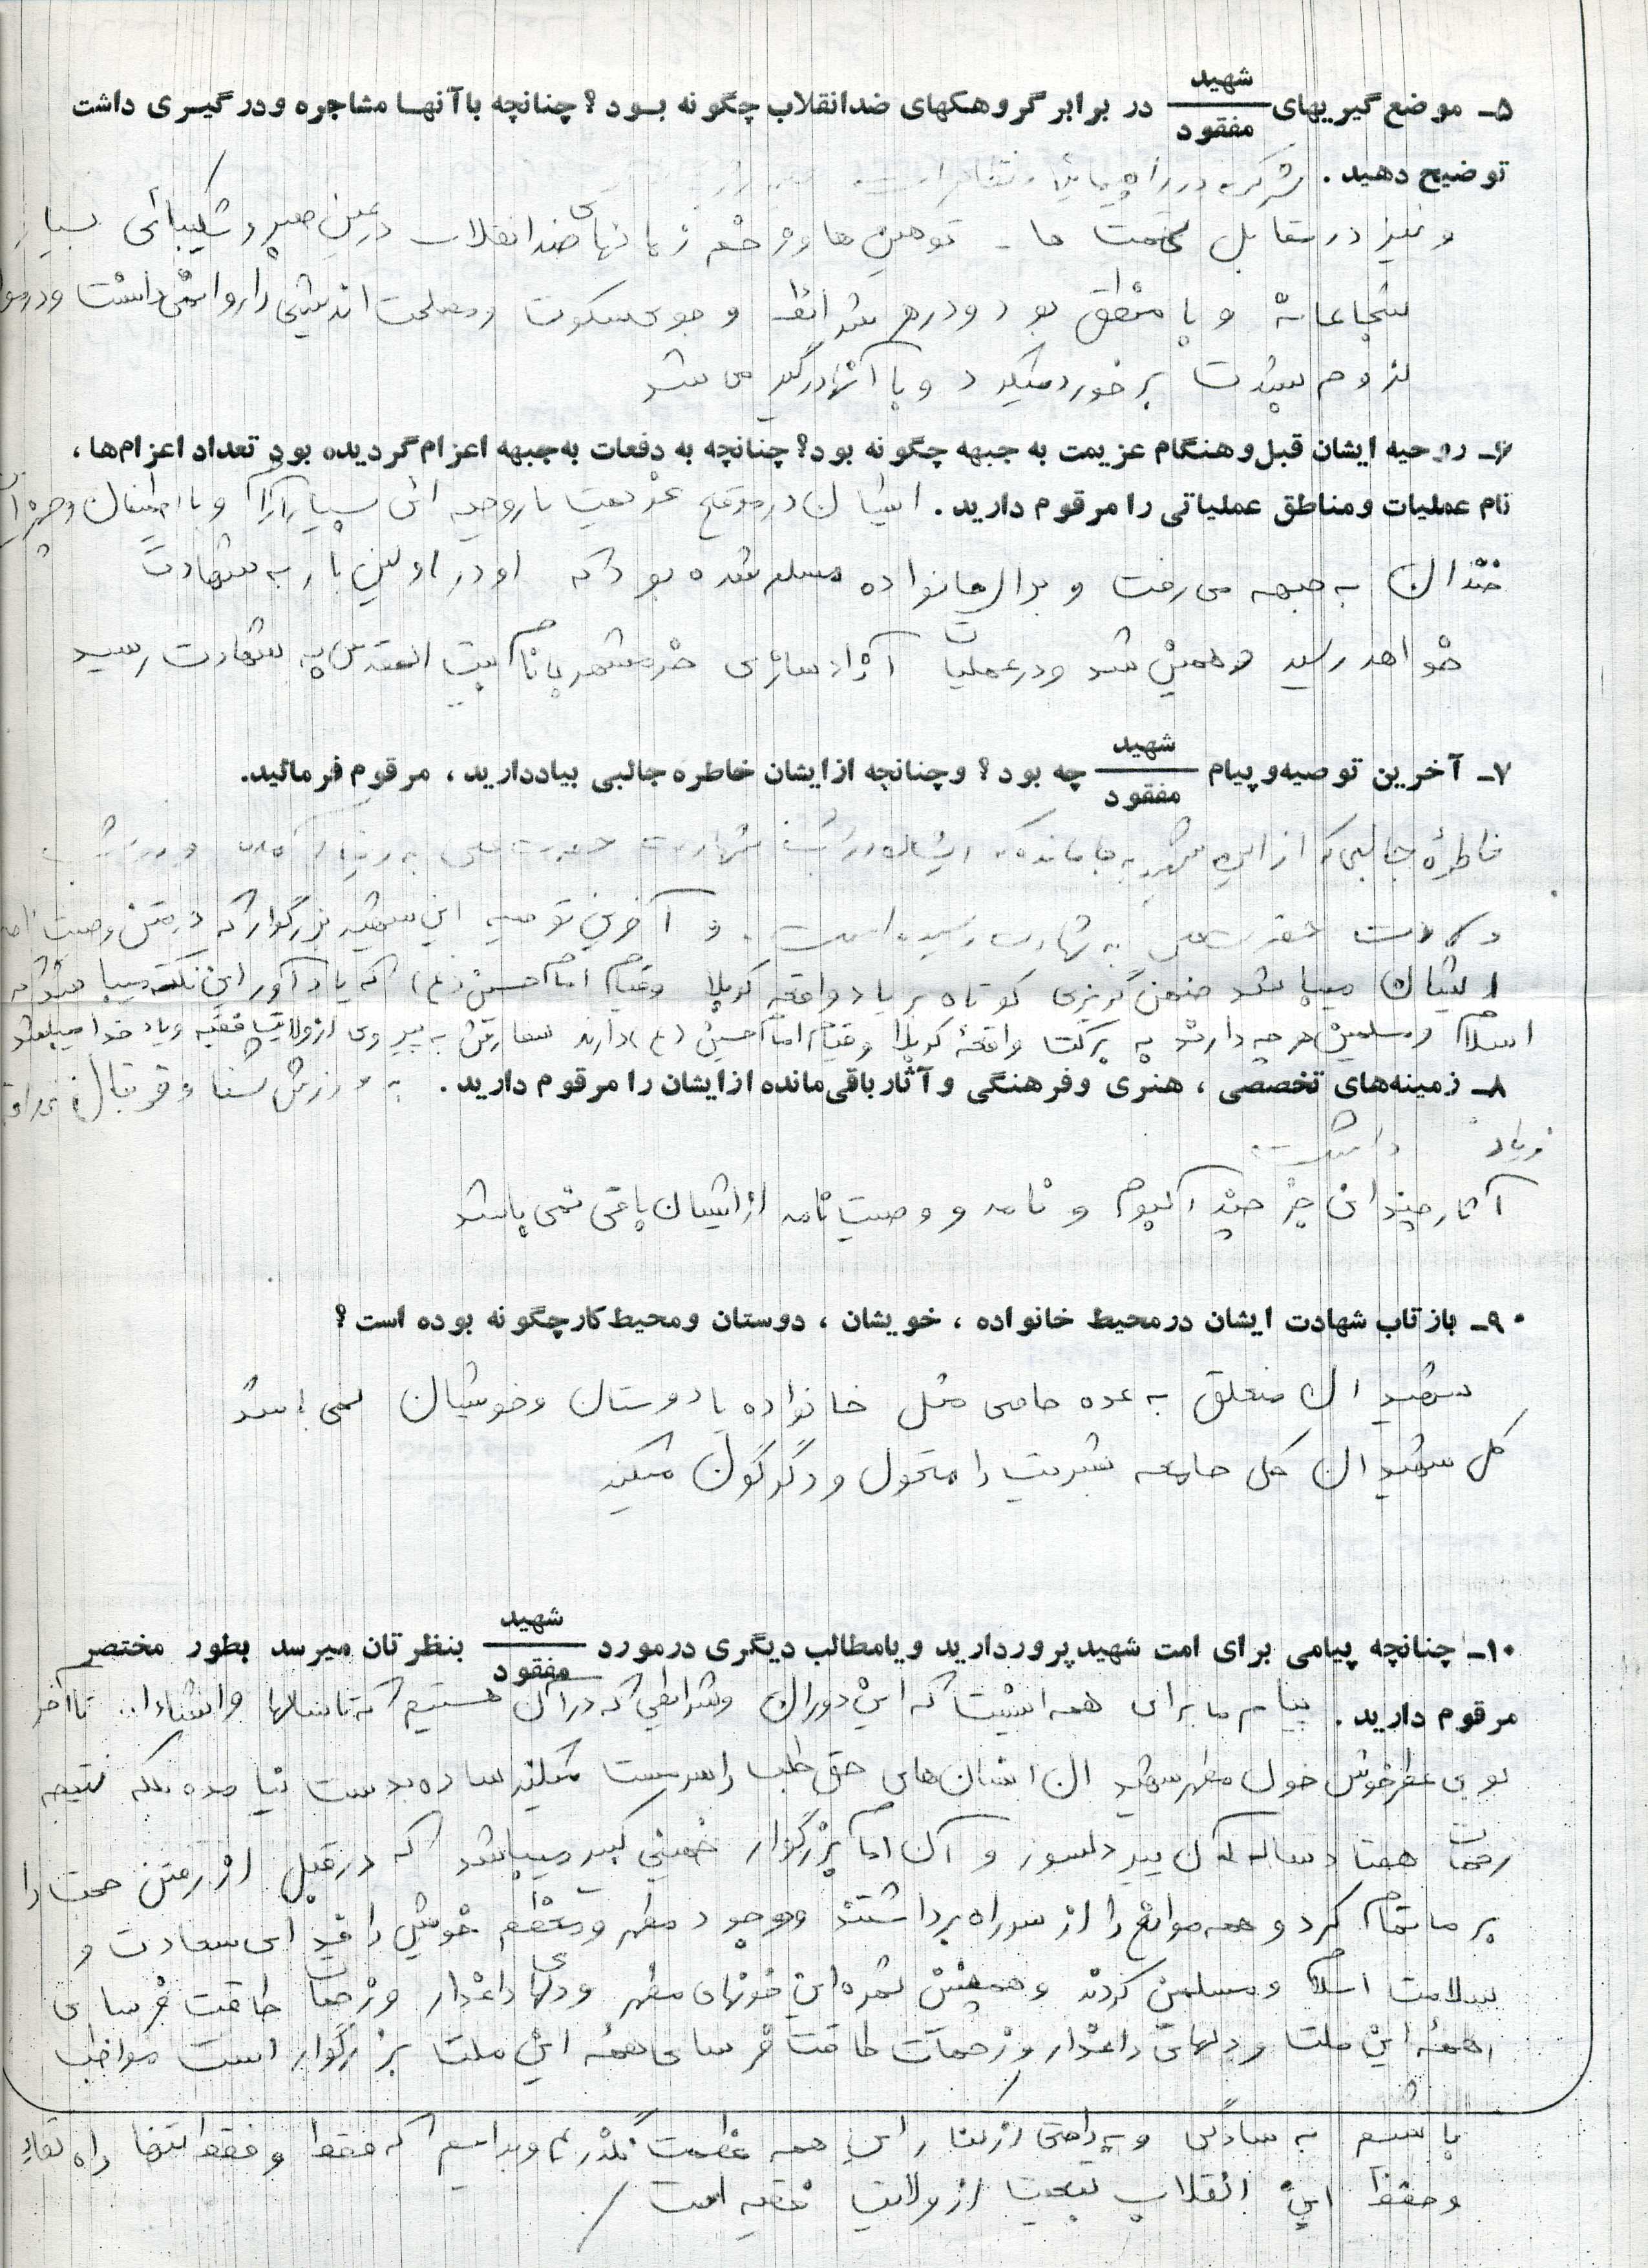 ۵ـ موضع گیریهای شهید / مفقود در برابر گروهکهای ضدانقلاب چگونه بود؟ چنانچه باآنها مشاجره ودرگیری داشت
توضیح دهید. شرکت در راه پیمائیها و تظاهرات
و نیز در مقابل تهمت ها ـ توهین ها و زخم زبانهای ضدانقلاب در عین صبر و شکیبائی بسیار
شجاعانه و با منطق بود و در هر شرائط و جوی سکوت و مصلحت اندیشی را روا نمی داشت و در
لزوم بشدت برخورد میکرد و با آنها درگیر می شد
۶ـ روحیه ایشان قبل وهنگام عزیمت به جبهه چگونه بود؟ چنانچه به دفعات به جبهه اعزام گردیده بود تعداد اعزام‌ها،
نام عملیات ومناطق عملیاتی را مرقوم دارید. ایشان در موقع عزیمت با روحیه ائی بسیار آرام و با اطمینان و چهره ای
خندان به جبهه می رفت و برای خانواده مسلم شده بود که او در اولین بار به شهادت
خواهد رسید و همین شد و در عملیات آزادسازی خرمشهر با نام بیت المقدس به شهادت رسید
۷ـ آخرین توصیه وپیام شهید / مفقود چه بود؟ وچنانچه ازایشان خاطره جالبی بیاددارید، مرقوم فرمائید.
خاطرهٔ جالبی که از این شهید به جا مانده که ایشان در شب شهادت حضرت علی به دنیا آمده و در شب
ولادت حضرت علی به شهادت رسیده است. و آخرین توصیه این شهید بزرگوار که در متن وصیت نامه
ایشان میباشد ضمن گریزی کوتاه بر یاد واقعه کربلا و قیام امام حسین (ع) که یادآور این نکته میباشد که
اسلام و مسلمین هر چه دارند به برکت واقعهٔ کربلا و قیام امام حسین (ع) دارند سفارش به پیروی از ولایت فقیه و یاد خدا میباشد
۸ـ زمینه‌های تخصصی، هنری وفرهنگی وآثار باقی‌مانده ازایشان را مرقوم دارید. به ورزش شنا و فوتبال
زیاد داشت
آثار چندانی جز چند آلبوم و نامه و وصیت نامه از ایشان باقی نمی باشد
۹ـ بازتاب شهادت ایشان درمحیط خانواده، خویشان، دوستان ومحیط کارچگونه بوده است؟
شهیدان متعلق به عده خاصی مثل خانواده یا دوستان و خویشان نمی باشد
کل شهیدان کل جامعه بشریت را متحول و دگرگون میکند
۱۰ـ چنانچه پیامی برای امت شهیدپرور دارید ویامطالب دیگری درمورد شهید / مفقود بنظرتان میرسد بطور مختصر
مرقوم دارید. پیام ما برای همه اینست که این دوران و شرایطی که در آن هستیم که تا سالها و انشاءا.. تا آخر
بوی عطر خوش خون مطهر شهیدان انسان های حق طلب را سرمست میکند ساده بدست نیامده بلکه نتیجه
زحمات هفتاد ساله آن پیر دلسوز و آن امام بزرگوار خمینی کبیر میباشد که در قبل از رفتن حجت را
بر ما تمام کرد و همه موانع را از سر راه برداشتند و وجود مطهر و معظم خویش را فدای سعادت و
سلامت اسلام و مسلمین کردند و همچنین ثمره این خونهای مطهر و دلهای داغدار و زحمات طاقت فرسای
همهٔ این ملت و دلهای داغدار و زحمات طاقت فرسای همهٔ این ملت بزرگوار است مواظب
باشیم به سادگی و به راحتی از کنار این همه عظمت نگذریم و بدانیم که فقط و فقط تنها راه بقاء
و حفظ این انقلاب تبعیت از ولایت فقیه است